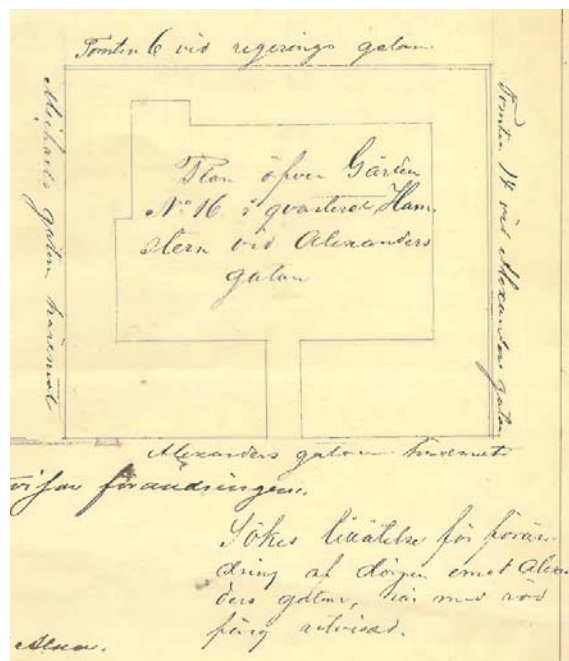 Tomten 6 vid regerings gatan.
Michaels gatan
Tomten 14 vid Alexanders gatan
Plan öfver Gården
No 16 i qvarteret Ham-
stern vid Alexanders
gatan
Alexanders gatan
förändringen.
Sökes tillåtelse för förän-
dring af dörren emot Alexan-
ders gatan, här med röd
färg utvisad.